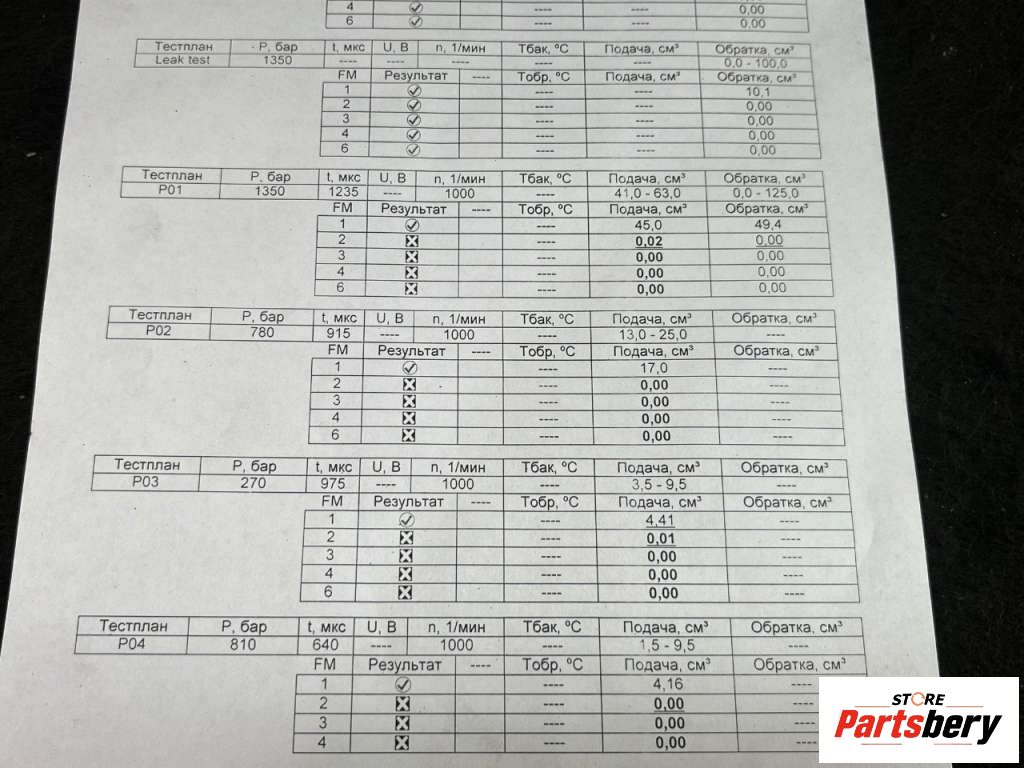 4 ---- ---- 0,00
6 ---- ---- 0,00
Тестплан P, бар t, мкс U, В n, 1/мин Тбак, ºC Подача, см³ Обратка, см³
Leak test 1350 ---- ---- ---- ---- ---- 0,0 - 100,0
FM Результат ---- Тобр, ºC Подача, см³ Обратка, см³
1 ---- ---- 10,1
2 ---- ---- 0,00
3 ---- ---- 0,00
4 ---- ---- 0,00
6 ---- ---- 0,00
Тестплан P, бар t, мкс U, В n, 1/мин Тбак, ºC Подача, см³ Обратка, см³
P01 1350 1235 ---- 1000 ---- 41,0 - 63,0 0,0 - 125,0
FM Результат ---- Тобр, ºC Подача, см³ Обратка, см³
1 ---- 45,0 49,4
2 ---- 0,02 0,00
3 ---- 0,00 0,00
4 ---- 0,00 0,00
6 ---- 0,00 0,00
Тестплан P, бар t, мкс U, В n, 1/мин Тбак, ºC Подача, см³ Обратка, см³
P02 780 915 ---- 1000 ---- 13,0 - 25,0 ----
FM Результат ---- Тобр, ºC Подача, см³ Обратка, см³
1 ---- 17,0 ----
2 ---- 0,00 ----
3 ---- 0,00 ----
4 ---- 0,00 ----
6 ---- 0,00 ----
Тестплан P, бар t, мкс U, В n, 1/мин Тбак, ºC Подача, см³ Обратка, см³
P03 270 975 ---- 1000 ---- 3,5 - 9,5 ----
FM Результат ---- Тобр, ºC Подача, см³ Обратка, см³
1 ---- 4,41 ----
2 ---- 0,01 ----
3 ---- 0,00 ----
4 ---- 0,00 ----
6 ---- 0,00 ----
Тестплан P, бар t, мкс U, В n, 1/мин Тбак, ºC Подача, см³ Обратка, см³
P04 810 640 ---- 1000 ---- 1,5 - 9,5 ----
FM Результат ---- Тобр, ºC Подача, см³ Обратка, см³
1 ---- 4,16 ----
2 ---- 0,00 ----
3 ---- 0,00 ----
4 ---- 0,00 ----
STORE
Partsbery